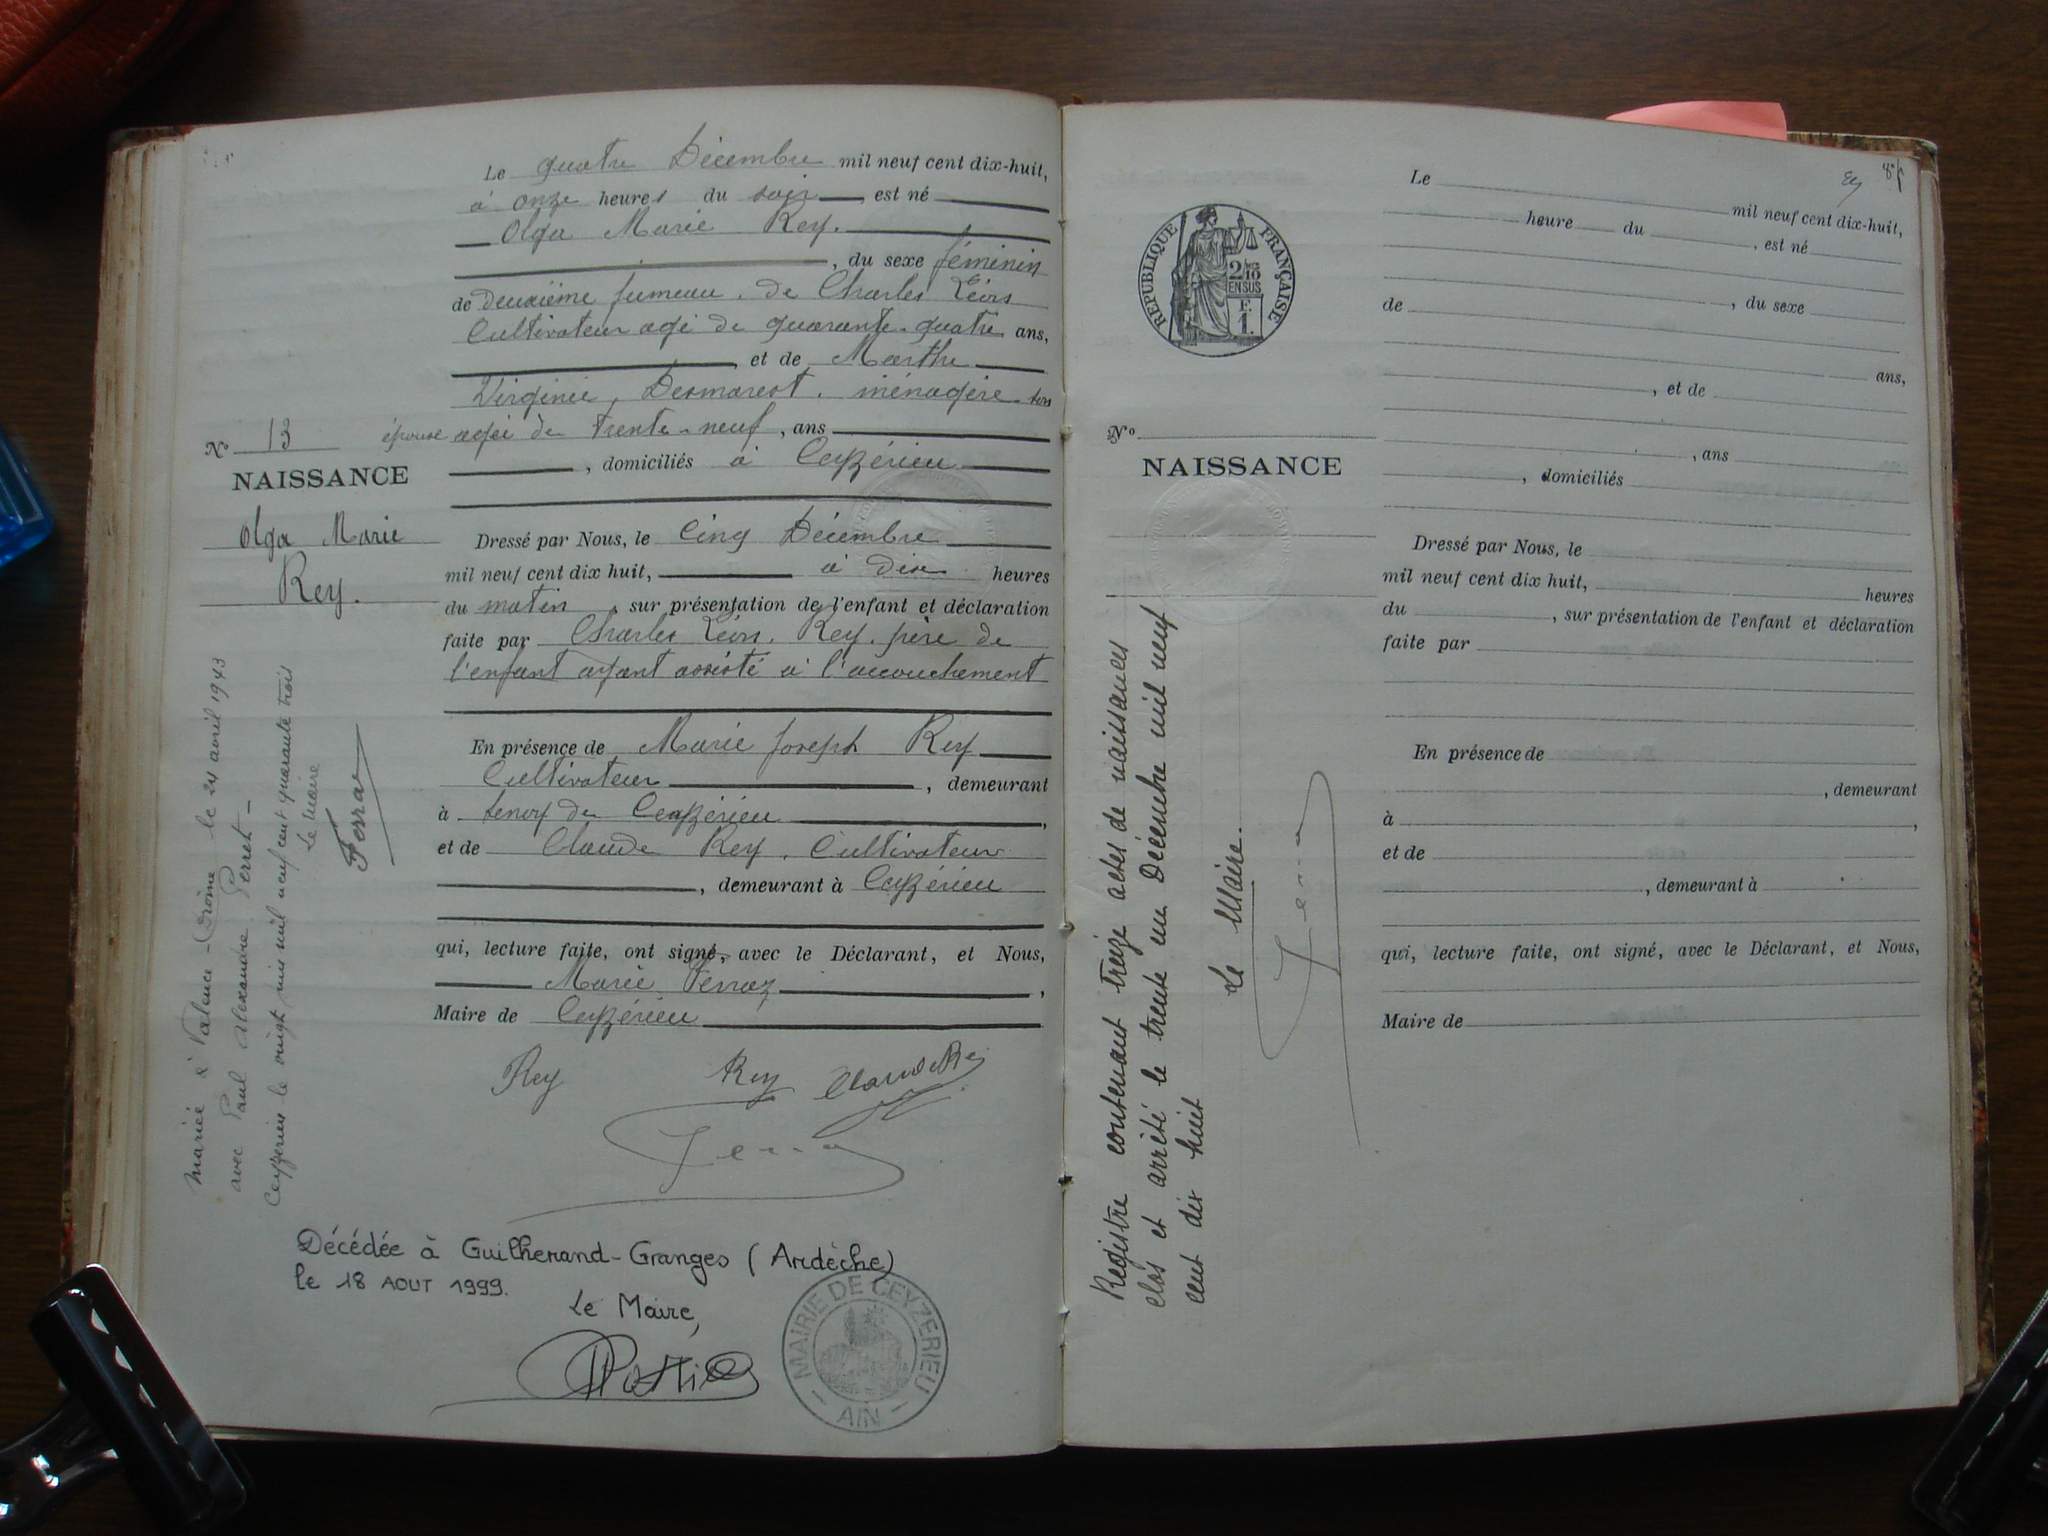 Le quatre Décembre mil neuf cent dix-huit,
à onze heures du soir, est né
Olga Marie Rey.
, du sexe féminin
de deuxième jumeau. de Charles Léon
Cultivateur agé de quarante-quatre ans,
et de Marthe
Virginie, Desmarest. ménagère. son
épouse agée de trente-neuf, ans
, domiciliés à Ceyzérieu
Nº 13
NAISSANCE
Olga Marie
Rey.
Dressé par Nous, le Cinq Décembre
mil neuf cent dix huit, à dix heures
du matin, sur présentation de l'enfant et déclaration
faite par Charles Léon. Rey. père de
l'enfant ayant assisté à l'accouchement
En présence de Marie Joseph Rey
Cultivateur, demeurant
à de Ceyzérieu,
et de Claude Rey. Cultivateur
, demeurant à Ceyzérieu
qui, lecture faite, ont signé, avec le Déclarant, et Nous,
Marie Ferraz,
Maire de Ceyzérieu
Rey Rey Claude Rey
Mariée à Valence-Drôme le 24 avril 1943
avec Paul Alexandre Perret-
Ceyzérieu le vingt mil neuf cent quarante trois
Le Maire
Décédée à Guilherand-Granges (Ardèche)
le 18 AOUT 1999.
Le Maire,
MAIRIE DE CEYZERIEU
- AIN -
8
RÉPUBLIQUE FRANÇAISE
2/10
EN SUS
F.
1.
Le mil neuf cent dix-huit,
heure du, est né
, du sexe
de
ans,
, et de
, ans
, domiciliés
Nº
NAISSANCE
Dressé par Nous, le
mil neuf cent dix huit, heures
du, sur présentation de l'enfant et déclaration
faite par
En présence de
, demeurant
à,
et de
, demeurant à
qui, lecture faite, ont signé, avec le Déclarant, et Nous,
Maire de
Registre contenant treize actes de naissances
clos et arrêté le trente un Décembre mil neuf
cent dix huit
Le Maire.